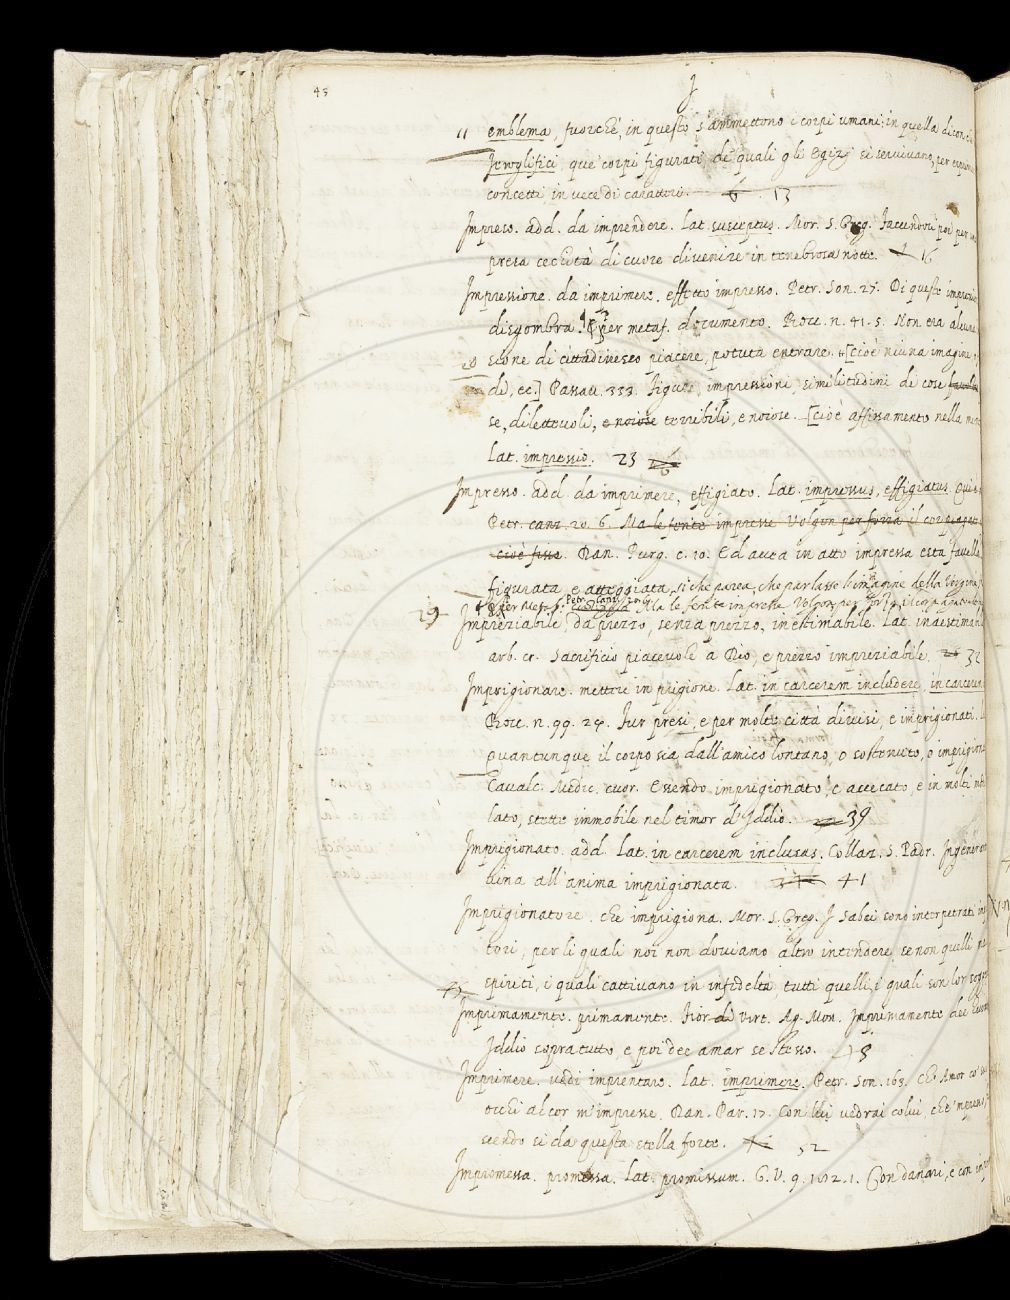 45
I
11 emblema, fuorchè, in questo s'ammettono i corpi umani; in quella dicon
Jeroglifici, que' corpi figurati, de' quali gli Egizj si servivano, per esprim
concetti, in vece di caratteri. 6 13
Impreso. add. da imprendere. Lat. susceptus. Mor. S. Greg. Facendoci poi per
presa cechità di cuore divenire in tenebrosa notte. 16
Impressione. da imprimere, effetto impresso. Petr. Son. 27. Di queste impression
disgombra. per metaf. documento. Bocc. n. 41. 5. Non era alcuna
20 sione di cittadinesco piacere, potuta entrare. [cioè niuna imagine
de, ec.] Passav. 333. Figure, impressioni, similitudini di cose
se, dilettevoli, e noiose terribili, e noiose. [cioè affissamento nella
Lat. impressio. 23
Impresso. add. da imprimere, effigiato. Lat. impressus, effigiatus. Qui
Petr. canz. 20. 6. Ma le ferite impresse Volgon per forza il cor piagato
cioè fisse. Dan. Purg. c. 10. Ed avea in atto impressa esta favella
figurata, e atteggiata, sì che parea, che parlasse l'imagine della Vergine
per metaf. Petr. canz. 20. Ma le ferite impresse Volgon per forza il cor piagato
29 Impreziabile, da prezzo, senza prezzo, inestimabile. Lat. inaestimab
arb. cr. Sacrificio piacevole a Dio, e prezzo impreziabile. 32
Imprigionare. mettere in prigione. Lat. in carcerem includere, in carcerem
Bocc. n. 99. 24. Fur presi, e per molte città divisi, e imprigionati.
Quantunque il corpo sia dall'amico lontano, o sostenuto, o imprigion
Cavalc. Medic. cuor. Essendo imprigionato, e accecato, e in molti
lato, stette immobile nel timor d'Iddio. 39
Imprigionato. add. Lat. in carcerem inclusus. Collaz. S. Padr. Ingener
vina all'anima imprigionata. 41
Imprigionatore. che imprigiona. Mor. S. Greg. I Sabei sono interpetrati
tori, per li quali noi non doviamo altro intendere, se non quelli
spiriti, i quali cattivano in infedeltà, tutti quelli, i quali son lor sogg
Imprimamente. primamente. Fior di Virt. Ag. Mon. Imprimamente dee
Iddio sopra tutto, e poi dee amar se stesso. 48
Imprimere. vedi imprentare. Lat. imprimere. Petr. Son. 163. Che Amor co'
occhi al cor m'impresse. Dan. Par. 17. Con lui vedrai colui, che 'mpresso,
scendo sì da questa stella forte. 52
Impromessa. promessa. Lat. promissum. G. V. 9. 102. 1. Con danari, e con